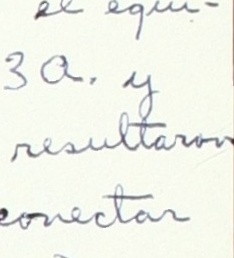 el equi-
3a. y
resultaron
conectar